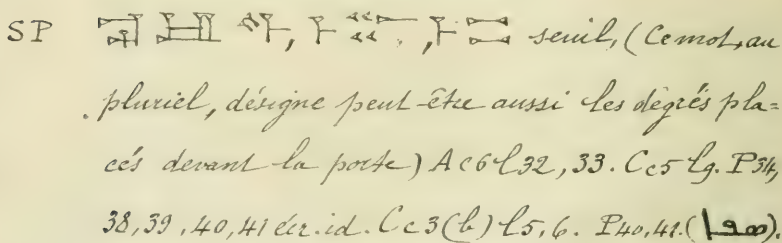 SP , , seuil, (Ce mot, au
pluriel, désigne peut-être aussi les dégrés pla=
cés devant la porte) Ac6 l32, 33. Cc5 l9. P34,
38, 39, 40, 41 etc. id. Cc3(b) l5, 6. P40, 41.